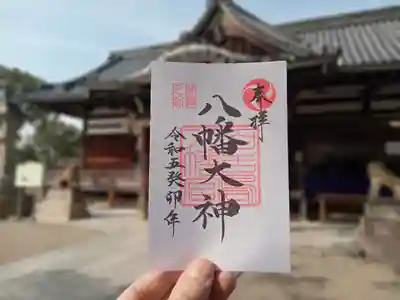 奉拝
八幡大神
令和五癸卯年